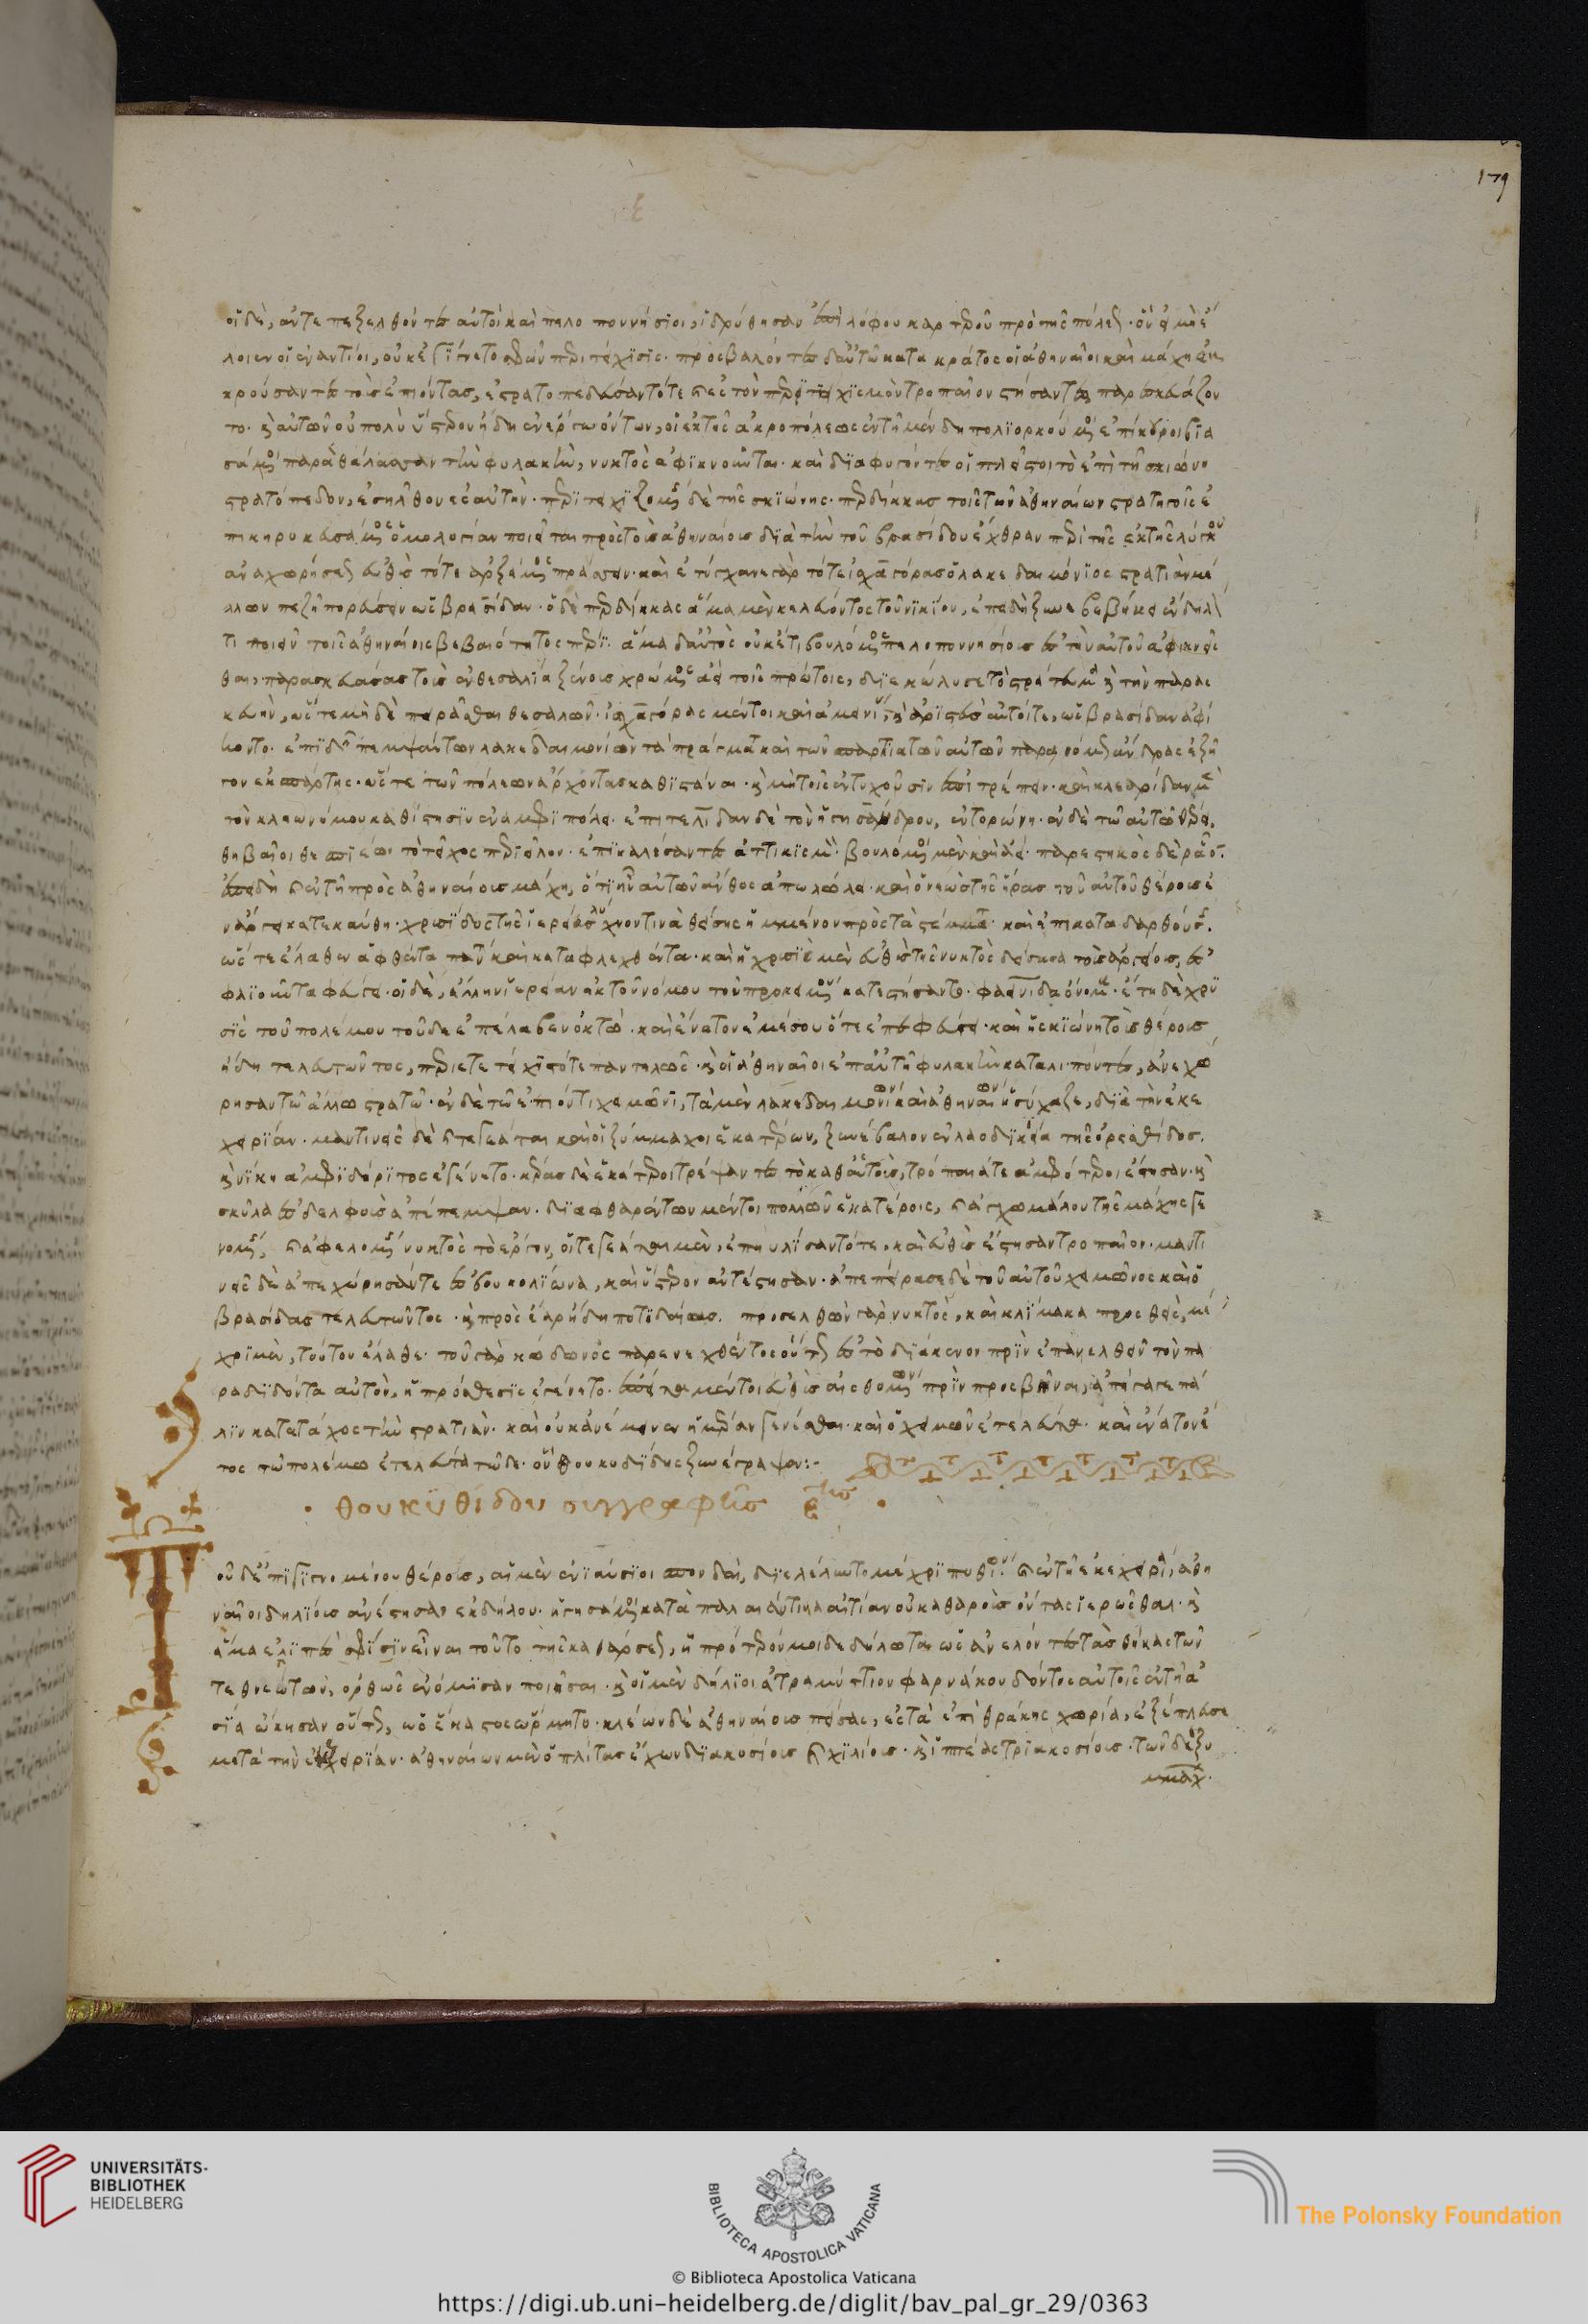 179
οἱ δὲ, ἀντεπεξελθόντες αὐτοὶ καὶ πελοποννήσιοι, ἱδρύθησαν ἐπὶ λόφου καρτεροῦ πρὸ τῆς πόλεως· ὃν εἰ μὴ ἕ
λοιεν οἱ ἐναντίοι, οὐκ ἐγίγνετο σφῶν περιτείχισις· προσβαλόντες δ αὐτῶ κατα κράτος οἱ ἀθηναῖοι καὶ μάχη ἐκ
κρούσαντες τοὺς ἐπιόντας, ἐστρατοπεδεύσαντό τε καὶ ἐς τὸν περιτειχισμὸν τροπαῖον στήσαντες παρεσκευάζον
το· καὶ αὐτῶν οὐ πολὺ ὕστερον ἤδη ἐν ἔργω ὄντων, οἱ ἐκ τῆς ἀκροπόλεως ἐν τῆ μένδη πολιορκούμενοι ἐπίκουροι βια
σάμενοι παρὰ θάλασσαν τὴν φυλακὴν, νυκτὸς ἀφικνοῦνται· καὶ διαφυγόντες οἱ πλεῖστοι τὸ ἐπὶ τῆ σκιώνη
στρατόπεδον, ἐσῆλθον ἐς αὐτὴν· περιτειχιζομένης δὲ τῆς σκιώνης· περδίκκας τοῖς τῶν ἀθηναίων στρατηγοῖς ἐ
πικηρυκευσάμενος ὁμολογίαν ποιεῖται πρὸς τοὺς ἀθηναίους διὰ τὴν τοῦ βρασίδου ἔχθραν περὶ τῆς ἐκ τῆς λύγκου
ἀναχωρήσεως εὐθὺς τότε ἀρξάμενος πράσσειν· καὶ ἐτύγχανε γὰρ τότε ἰσχαγόρας ὁ λακεδαιμόνιος στρατιὰν μέ
λλων πεζῆ πορεύσειν ὡς βρασίδαν· ὁ δὲ περδίκκας ἅμα μὲν κελεύοντος τοῦ νικίου, ἐπειδὴ ξυνεβεβήκει ἔνδηλόν
τι ποιεῖν τοῖς ἀθηναίοις βεβαιότητος πέρι· ἅμα δ αὐτὸς οὐκέτι βουλόμενος πελοποννησίους ἐς τὴν αὐτοῦ ἀφικνεῖσ
θαι, παρασκευάσας τοὺς ἐν θεσαλία ξένους χρώμενος ἀεὶ τοῖς πρώτοις, διεκώλυσε τὸ στράτευμα καὶ τὴν παρασ
κευὴν, ὥστε μηδὲ πειρᾶσθαι θεσαλῶν· ἰσχαγόρας μέντοι καὶ ἀμεινίας, καὶ ἀριστεὺς αὐτοί τε, ὡς βρασίδαν ἀφί
κοντο· ἐπιδεῖν πεμψάντων λακεδαιμονίων τὰ πράγματα καὶ τῶν σπαρτιατῶν αὐτῶν παρανόμως ἄνδρας ἐξῆ
γον ἐκ σπάρτης· ὥστε τῶν πόλεων ἄρχοντας καθιστάναι· καὶ μὴ τοῖς ἐντυχοῦσιν ἐπιτρέπειν· καὶ κλεαρίδαν μὲν
τὸν κλεωνύμου καθίστησιν ἐν ἀμφιπόλει· ἐπιτελίδαν δὲ τὸν ἡγησάνδρου, ἐν τορώνη· ἐν δὲ τῶ αὐτῶ θέρει,
θηβαῖοι θεσπιέων τὸ τεῖχος περιεῖλον· ἐπικαλέσαντες ἀττικισμὸν· βουλόμενοι μὲν καὶ ἀεί· παρεστηκὸς δὲ ῥᾶον·
ἐπειδὴ καὶ ἐν τῆ πρὸς ἀθηναίους μάχη, ὅτι ἦν αὐτῶν ἄνθος ἀπωλώλει· καὶ ὁ νεὼς τῆς ἥρας τοῦ αὐτοῦ θέρους ἐ
ν ἄργει κατεκαύθη· χρυσίδος τῆς ἱερείας λύχνον τινὰ θείσης ἡμμένον πρὸς τὰ στέμματα· καὶ ἐπικαταδαρθούσης,
ὥστε ἔλαθεν ἁφθέντα πάντα καὶ καταφλεχθέντα· καὶ ἡ χρυσὶς μὲν εὐθὺς τῆς νυκτὸς δείσασα τοὺς ἀργείους, ἐς
φλιοῦντα φεύγει· οἱ δὲ, ἄλλην ἱέρειαν ἐκ τοῦ νόμου τοῦ προκειμένου κατεστήσαντο· φαεινίδα ὄνομα· ἔτη δὲ χρυ
σὶς τοῦ πολέμου τοῦδε ἐπέλαβεν ὀκτὼ· καὶ ἔνατον ἐκ μέσου ὅτε ἐπεφεύγει· καὶ ἡ σκιώνη τοῦ θέρους
ἤδη τελευτῶντος, περιετετείχιστό τε παντελῶς· καὶ οἱ ἀθηναῖοι ἐπ αὐτῆ φυλακὴν καταλιπόντες, ἀνεχώ
ρησαν τῶ ἄλλω στρατῶ· ἐν δὲ τῶ ἐπιόντι χειμῶνι, τὰ μὲν λακεδαιμονίων καὶ ἀθηναίων ἡσύχαζε, διὰ τὴν ἐκε
χειρίαν· μαντινεῖς δὲ καὶ τεγεάται καὶ οἱ ξύμμαχοι ἑκατέρων, ξυνέβαλον ἐν λαοδικεία τῆς ὀρεσθίδος,
καὶ νίκη ἀμφιδήριτος ἐγένετο· κέρας δὲ ἑκάτεροι τρέψαντες τὸ καθ αὑτοὺς, τροπαῖά τε ἀμφότεροι ἔστησαν· καὶ
σκῦλα ἐς δελφοὺς ἀπέπεμψαν· διαφθαρέντων μέντοι πολλῶν ἑκατέροις, καὶ ἀγχωμάλου τῆς μάχης γε
νομένης, καὶ ἀφελομένης νυκτὸς τὸ ἔργον, οἱ τεγεάται μὲν, ἐπηυλίσαντό τε, καὶ εὐθὺς ἔστησαν τροπαῖον· μαντι
νεῖς δὲ ἀπεχώρησάν τε ἐς βουκολιῶνα, καὶ ὕστερον ἀντέστησαν· ἀπεπείρασε δὲ τοῦ αὐτοῦ χειμῶνος καὶ ὁ
βρασίδας τελευτῶντος· καὶ πρὸς ἔαρ ἤδη ποτιδαίας· προσελθὼν γὰρ νυκτὸς, καὶ κλίμακα προσθεὶς, μέ
χρι μὲν, τούτου ἔλαθε· τοῦ γὰρ κώδωνος παρενεχθέντος οὕτως ἐς τὸ διάκενον πρὶν ἐπανελθεῖν τὸν πα
ραδιδόντα αὐτὸν, ἡ πρόσθεσις ἐγένετο· ἔπειτα μέντοι εὐθὺς αἰσθομένων πρὶν προσβῆναι, ἀπήγαγε πά
λιν κατα τάχος τὴν στρατιὰν· καὶ οὐκ ἀνέμεινεν ἡμέραν γενέσθαι· καὶ ὁ χειμὼν ἐτελεύτα· καὶ ἔνατον ἔ
τος τῶ πολέμω ἐτελεύτα τῶδε· ὃν θουκυδίδης ξυνέγραψεν:-
θουκυδίδου συγγραφῆς ε
Τοῦ δ ἐπιγιγνομένου θέρους, αἱ μὲν ἐνιαύσιοι σπονδαὶ, διελέλυντο μέχρι πυθίων· καὶ ἐν τῆ ἐκεχειρία, ἀθη
ναῖοι δηλίους ἀνέστησαν ἐκ δήλου· ἡγησάμενοι κατὰ παλαιάν τινα αἰτίαν οὐ καθαροὺς ὄντας ἱερῶσθαι· καὶ
ἅμα ἐλλιπὲς σφίσιν εἶναι τοῦτο τῆς καθάρσεως, ἧ πρότερόν μοι δεδήλωται ὡς ἀνελόντες τὰς θήκας τῶν
τεθνεώτων, ὀρθῶς ἐνόμισαν ποιῆσαι· καὶ οἱ μὲν δήλιοι ἀτραμύττιον φαρνάκου δόντος αὐτοῖς ἐν τῆ ἀ
σία ὤκησαν οὕτως, ὡς ἕκαστος ὥρμητο· κλέων δὲ ἀθηναίους πείσας, ἐς τὰ ἐπὶ θράκης χωρία, ἐξέπλευσε
μετὰ τὴν ἐκεχειρίαν· ἀθηναίων μὲν ὁπλίτας ἔχων διακοσίους καὶ χιλίους· καὶ ἱππέας τριακοσίους· τῶν δὲ ξυ
μμάχ·
UNIVERSITÄTS-
BIBLIOTHEK
HEIDELBERG
BIBLIOTECA APOSTOLICA VATICANA
The Polonsky Foundation
© Biblioteca Apostolica Vaticana
https://digi.ub.uni-heidelberg.de/diglit/bav_pal_gr_29/0363